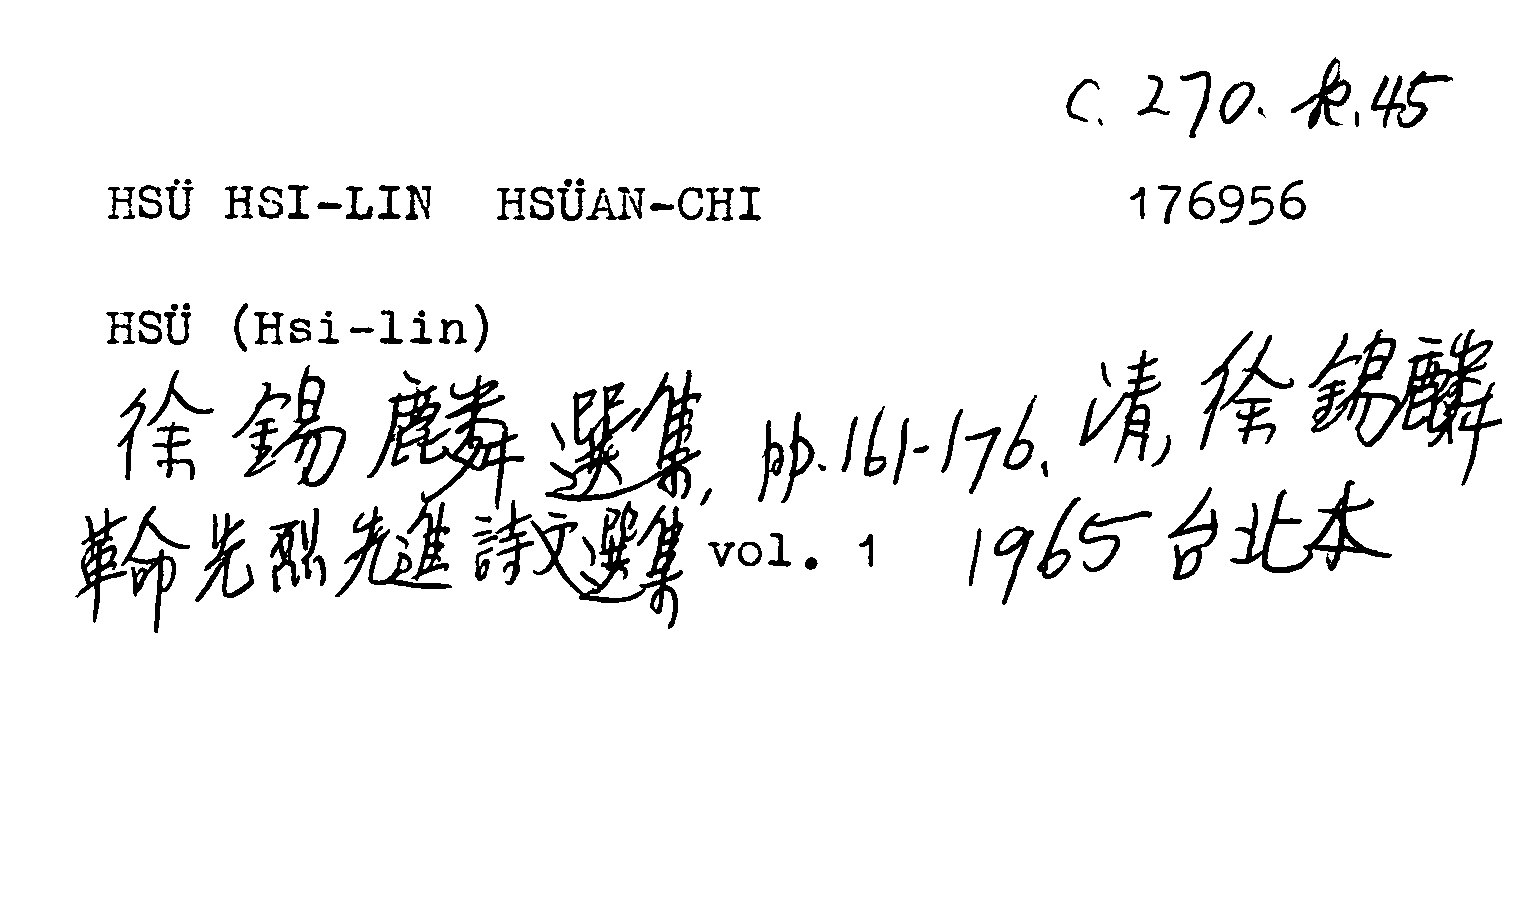 C. 270. k. 45
HSÜ HSI-LIN HSÜAN-CHI 176956
HSÜ (Hsi-lin)
徐錫麟選集, pp. 161-176. 清, 徐錫麟
革命先烈先進詩文選集 vol. 1 1965 台北本